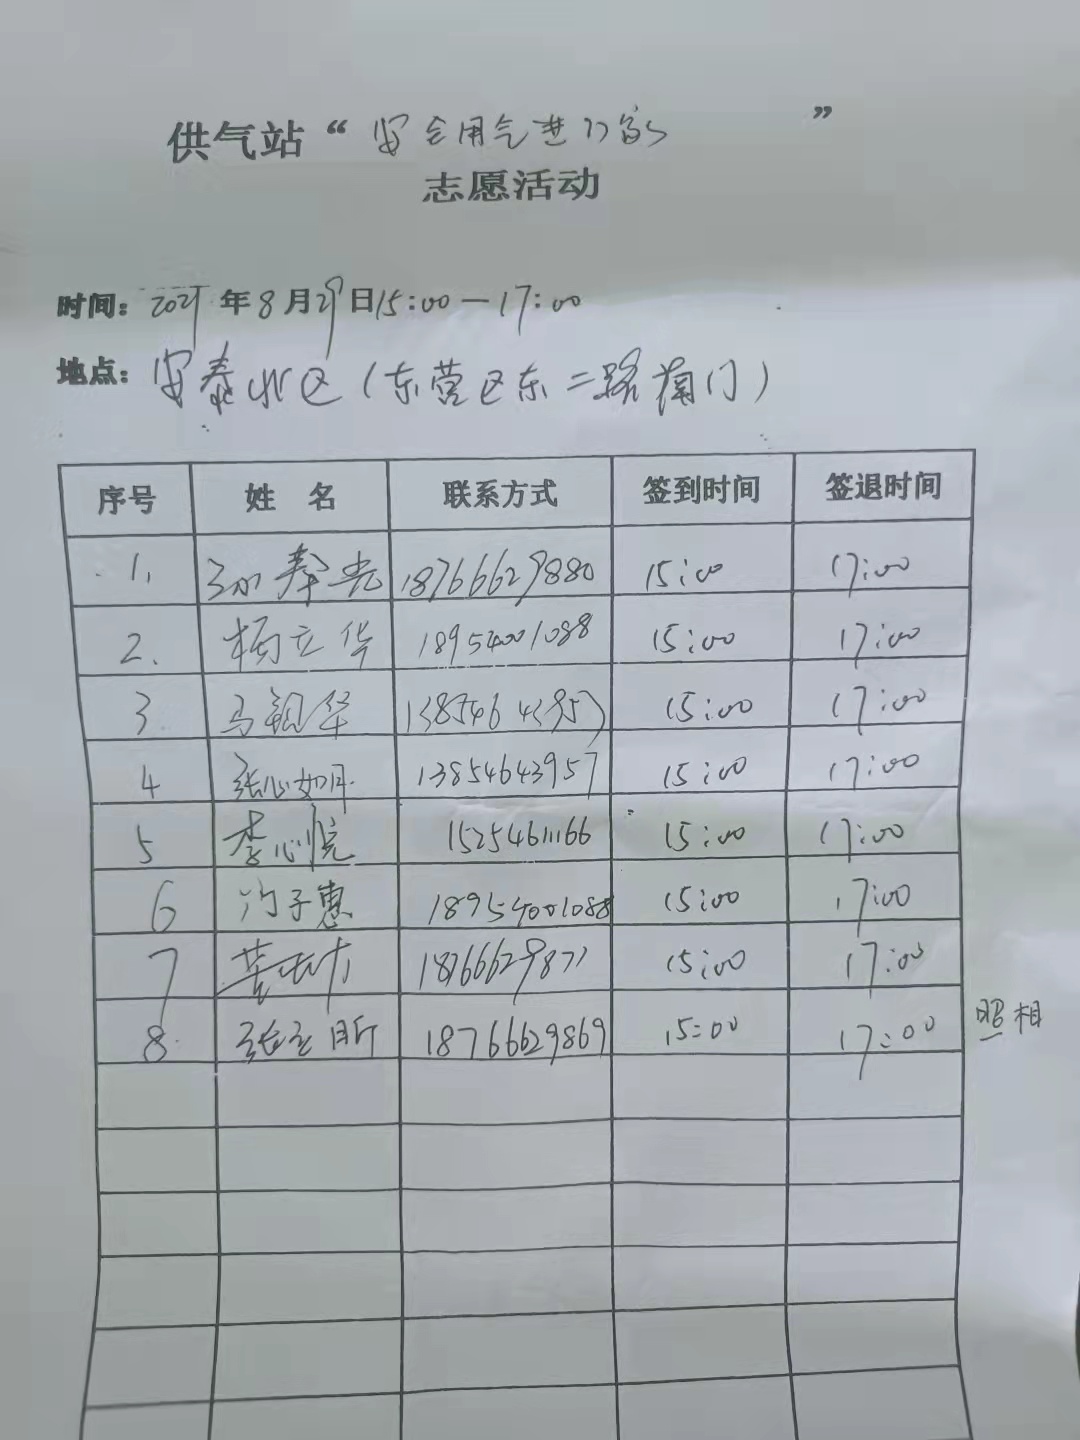 供气站“安全用气进万家”
志愿活动
时间：2021年8月29日15:00—17:00
地点：安泰北区（东营区东二路南门）
序号 姓名 联系方式 签到时间 签退时间
1. 18766629880 15:00 17:00
2. 杨立华 18954001088 15:00 17:00
3 马银华 13854643957 15:00 17:00
4 张心如 13854643957 15:00 17:00
5 李心悦 15254611166 15:00 17:00
6 子惠 18954001088 15:00 17:00
7 18766629871 15:00 17:00
8. 张 18766629869 15:00 17:00 照相